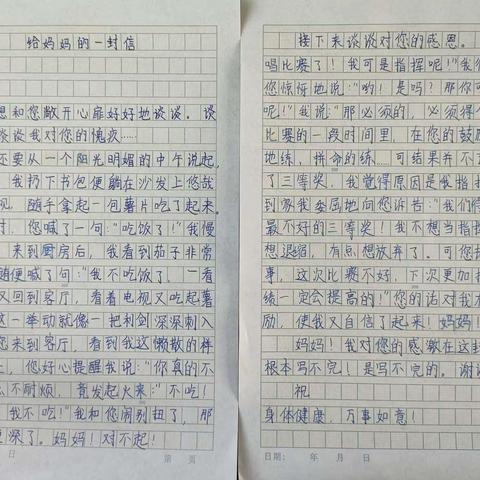 给妈妈的一封信
想和您敞开心扉好好地谈谈。谈
谈谈我对您的愧疚……
还要从一个阳光明媚的中午说起,
我扔下书包便躺在沙发上您战
视,随手拿起一包薯片吃了起来。
时,您喊了一句:"吃饭了!"我慢
来到厨房后,我看到茄子非常
随便喊了句:"我不吃饭了。一看
又回到客厅,看看电视又吃起薯
这一举动就像一把利剑深深刺入
您来到客厅,看到我这懒散的样
上,您好心提醒我说:"你真的不
么不耐烦,竟发起火来:"不吃!
我不吃!"我和您闹别扭了,那
更深了。妈妈!对不起!
日
第 页
接下来谈谈对您的感恩。
唱比赛了!我可是指挥呢!"我很
您惊讶地说:"哟!是吗?那你可
呢!"我说:"那必须的,必须得
比赛的一段时间里,在您的鼓励
地练,拼命的练……可结果并不
了三等奖,我觉得原因是我指挥
到家我委屈地向您诉告:"我们得
最不好的三等奖!我不想当指挥
想退宿,有点想放弃了。可您
事,这次比赛不好,下次更加
练一定会提高的!"您的话对我
励,使我又自信了起来!妈妈!
妈妈!我对您的感激在这封
根本写不完!是写不完的。谢谢
祝
身体健康,万事如意!
日期: 年 月 日